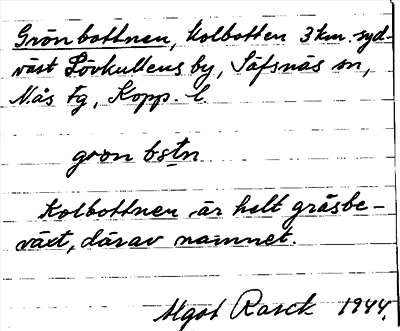 Grönbottnen, Kolbotten 3 km. syd-
väst Lövkullens by, Säfsnäs sn,
Nås tg, Kopp. l.
grön bơtn
Kolbottnen är helt gräsbe-
växt, därav namnet.
Algot Rasck 1944.